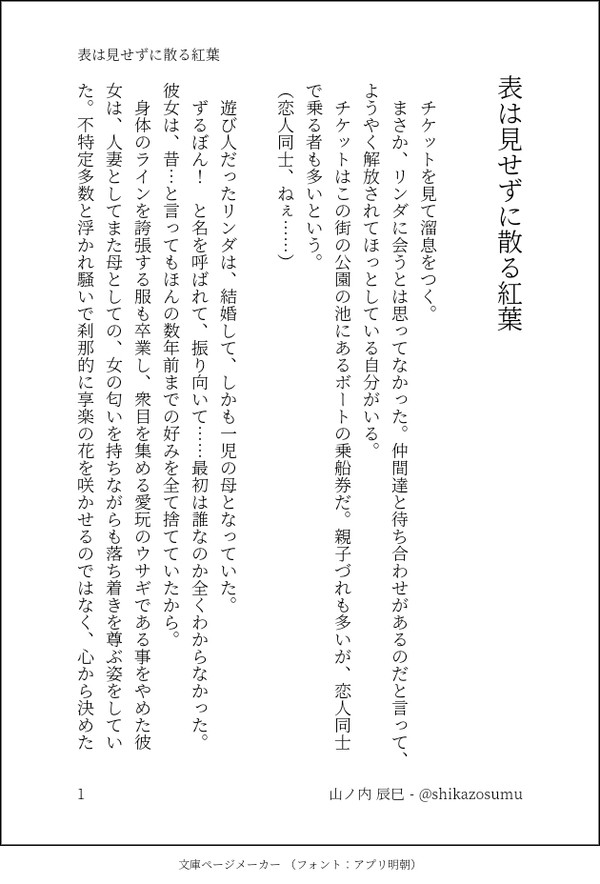 表は見せずに散る紅葉
表は見せずに散る紅葉
　チケットを見て溜息をつく。
　まさか、リンダに会うとは思ってなかった。仲間達と待ち合わせがあるのだと言って、
ようやく解放されてほっとしている自分がいる。
　チケットはこの街の公園の池にあるボートの乗船券だ。親子づれも多いが、恋人同士
で乗る者も多いという。
（恋人同士、ねぇ……）
　遊び人だったリンダは、結婚して、しかも一児の母となっていた。
　ずるぼん！　と名を呼ばれて、振り向いて……最初は誰なのか全くわからなかった。
彼女は、昔…と言ってもほんの数年前までの好みを全て捨てていたから。
　身体のラインを誇張する服も卒業し、衆目を集める愛玩のウサギである事をやめた彼
女は、人妻としてまた母としての、女の匂いを持ちながらも落ち着きを尊ぶ姿をしてい
た。不特定多数と浮かれ騒いで刹那的に享楽の花を咲かせるのではなく、心から決めた
1
山ノ内 辰巳 - @shikazosumu
文庫ページメーカー （フォント：アプリ明朝）